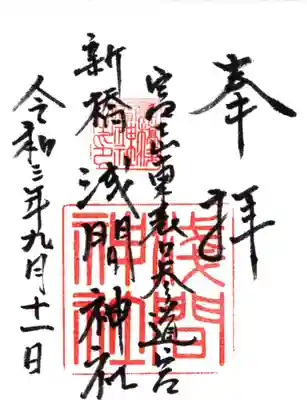 奉拝
富士山東表口参道宮
新橋浅間神社
令和三年九月十一日
淺間
神社